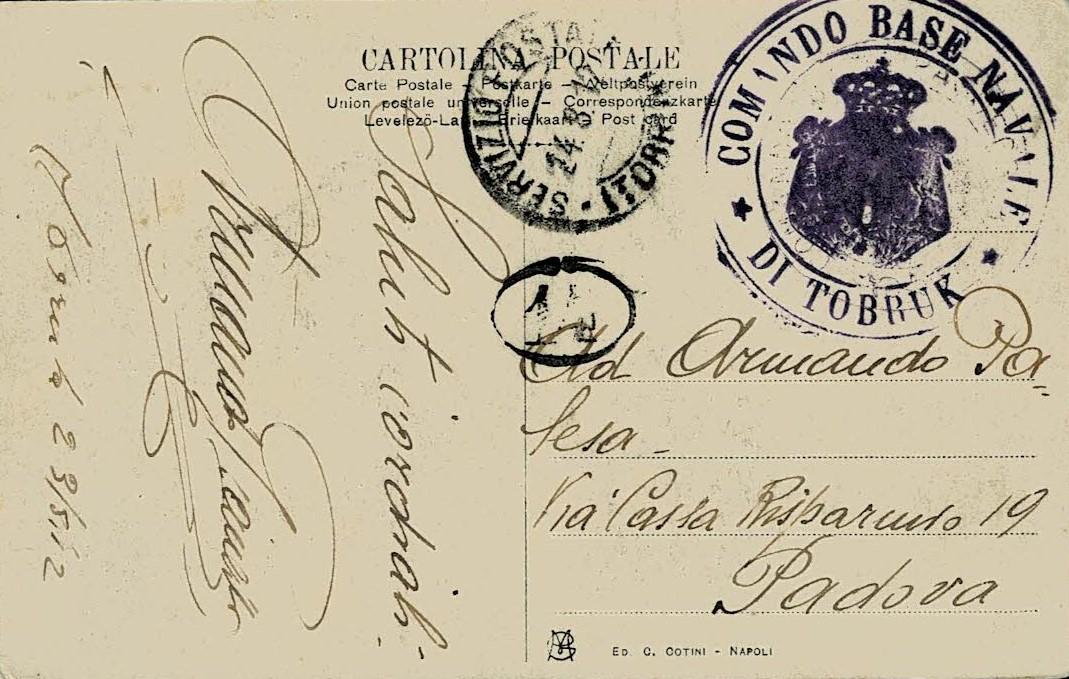 CARTOLINA POSTALE
Carte Postale – Postkarte – Weltpostverein
Union postale universelle – Correspondenzkarte
Levelezö-Lap – Briefkaart – Post card
SERVIZIO POSTA
24.5.12
(TOBRUK
COMANDO BASE NAVALE
★ DI TOBRUK ★
Saluti cordiali
Tobruk 23/5.12
Ad Armando Pa=
lesa -
Via Cassa Risparmio 19
Padova
ED. C. COTINI - NAPOLI